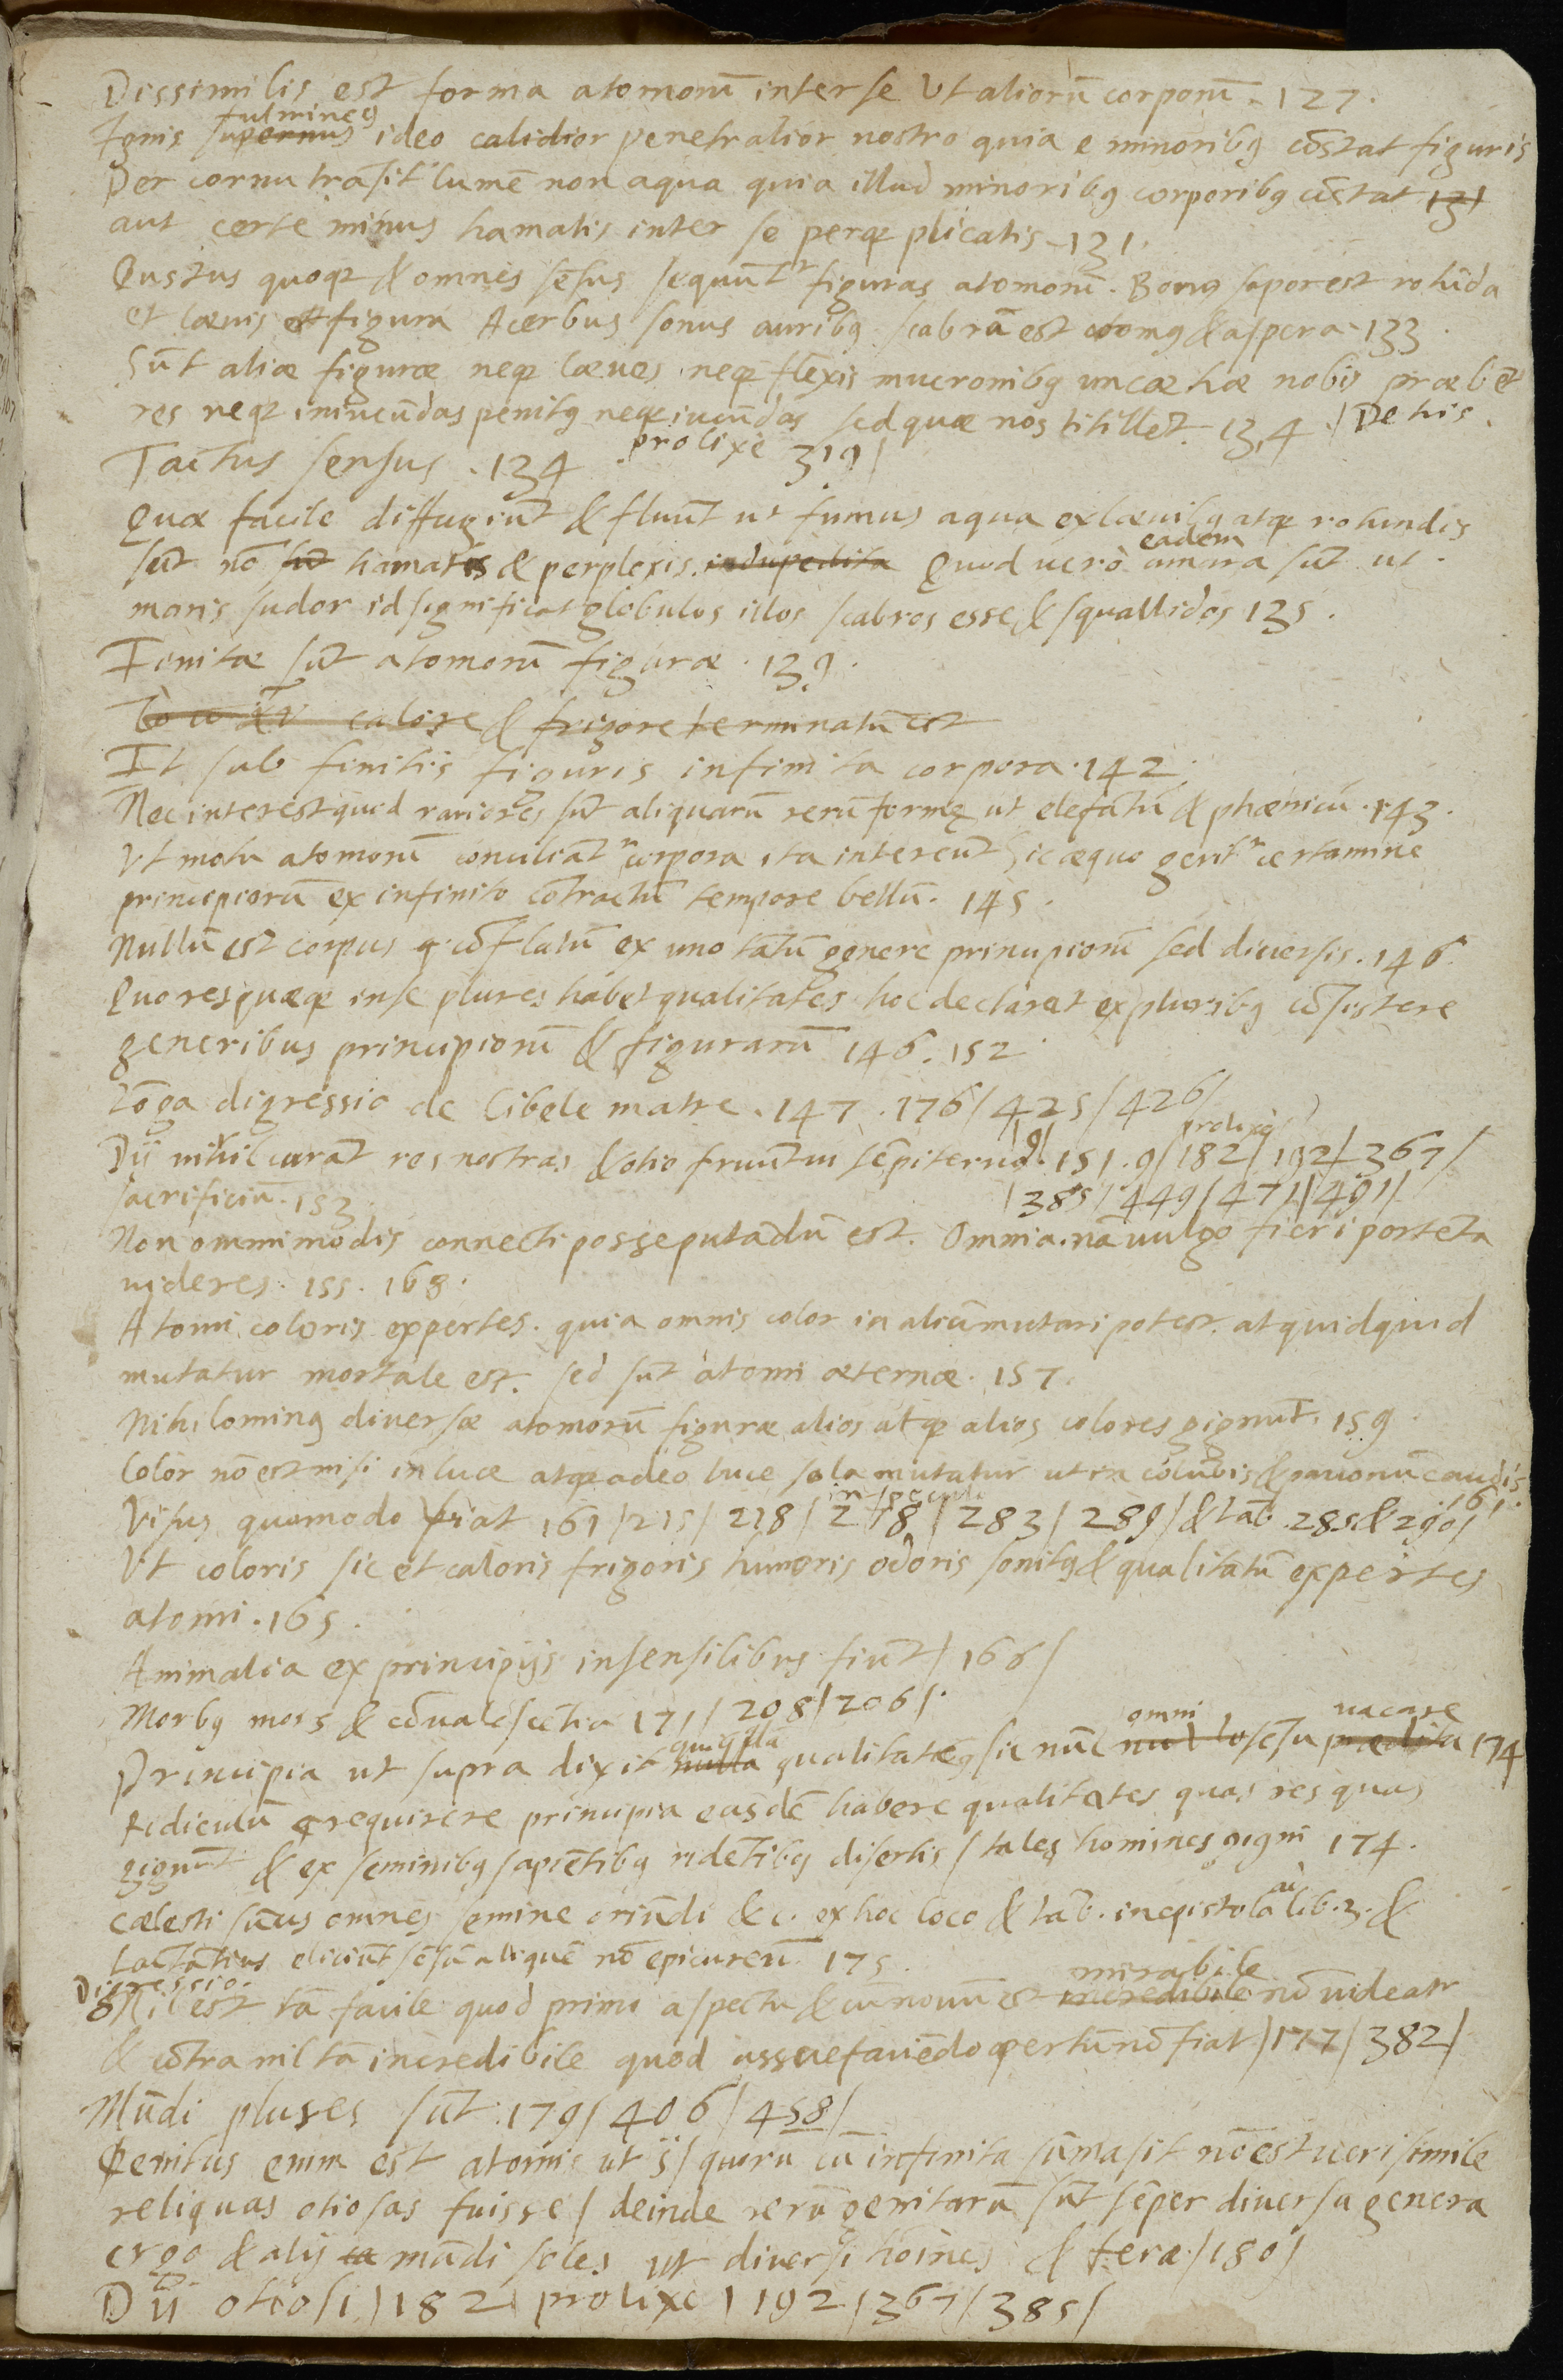 Dissimilis est forma atomorū inter se Vt aliorū corporū. 127.
fulmineꝰ
Ignis supernus ideo calidior penetratior nostro quia e minoribꝰ cōstat figuris
Per cornu trāsit lumē non aqua quia illud minoribꝰ corporibꝰ cōstat 131
aut certe minus hamatis inter se perqꝫ plicatis. 131.
Gustus quoqꝫ & omnes sēsus sequūtʳ figuras atomorū. Bonꝰ sapor est rotūda
et lævis est figura Acerbus sonus auribꝰ scabra est atomꝰ & aspera. 133.
Sūt aliæ figuræ neqꝫ læves neqꝫ flexis mucronibꝰ uncæ hæ nobis præbēt
res neqꝫ iniucūdas penitꝰ neqꝫ iucūdas sed quæ nos titillēt. 134. / De his.
Tactus sensus. 134 prolixè 319/
Quæ facile diffugiūt & fluūt ut fumus aqua ex lævibꝰ atqꝫ rotundis
eadem
sūt nō sūt hamatis & perplexis indupedita Quod uerò amara sūt ut
maris sudor id significat globulos illos scabros esse & squallidos 135.
Finitæ sūt atomorū figuræ. 139.
calore & frigore terminatū est
Et sub finitis figuris infinita corpora. 142.
Nec interest quod rariores sūt aliquarū rerū formę ut elefātū & phœnicū. 143.
Vt motu atomorū conciliātʳ corpora ita intereūt Sic æquo geritʳ certamine
principiorū ex infinito cōtractū tempore bellū. 145.
Nullū est corpus q cōflatū ex uno tātū genere principiorū sed diuersis. 146.
Quo res quæqꝫ in se plures habet qualitates hoc declarat ex pluribꝰ cōsistere
generibus principiorū & figurarū 146. 152.
Lōga digressio de Cibele matre. 147. 176/425/426/
prolixè
Dij nihil curāt res nostras & otio fruūtur sēpiterno. 151. 9/182/192/367/
sacrificiū. 153. /385/449/471/491/
Non omnimodis connecti posse putādū est. Omnia. nā uulgo fieri portēta
uideres. 155. 168.
Atomi coloris expertes. quia omnis color in aliū mutari potest. at quidquid
mutatur mortale est. sed sūt atomi æternæ. 157.
Nihilominꝰ diuersæ atomorū figuræ alios atqꝫ alios colores gignūt. 159.
Color nō est nisi in luce atqꝫ adeo luce sola mutatur ut in colūbis & pauonū caudis
161.
in speculo
Visus quomodo fiat 161/215/218/278/283/289/ & tāb. 285 & 290/
Vt coloris sic et caloris frigoris humoris odoris sonitꝰ & qualitatū expertes
atomi. 165.
Animalia ex principijs insensilibus fiūt/166/
Morbꝰ mors & cōualescētia 171/208/206/.
omni uacare
Principia ut supra dixit nulla qualitate sic nūc nullo sēsu prædita 174
Ridiculū requirere principia easdē habere qualitates quas res quas
gignūt & ex seminibꝰ sapiētibꝰ ridētibꝰ disertis / tales homines gigni 174.
Cælesti sumus omnes semine oriūdi &c. ex hoc loco & tāb. in epistola ad lib. 3. &
Lactātius eliciūt sēsū aliquē nō epicureū. 175.
Digressio. mirabile
Nil est tā facile quod primo aspectu & cū nouū est incredibile nō uideatʳ
& cōtra nil tā incredibile quod assuefaciēdo apertū nō fiat/177/382/
Mūdi plures sūt. 179/406/458/
Penitus enim est atomis ut sī/ quorū cū infinita sūma sit nō est uerisimile
reliquas otiosas fuisse / deinde rerū genitarū sūt sēper diuersa genera
ergo & alij mūdi soles ut diuersi hoīnes & feræ./180/
Dij otiosi/182/prolixe/192/367/385/